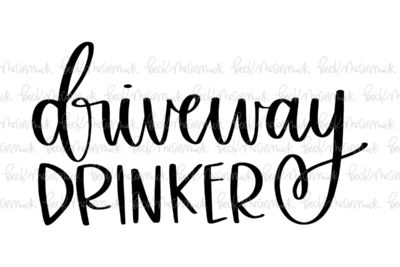 driveway
DRINKER